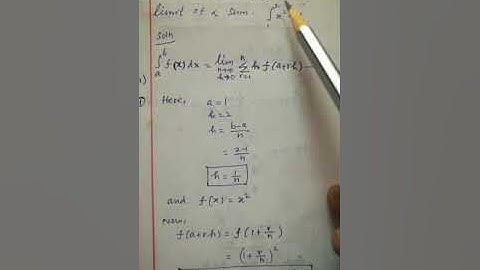 limit of a sum. ∫ x²
Soln
∫ₐᵇ f(x) dx = lim n→∞ h→0 Σ r=1 n h f(a+rh)
Here, a = 1
b = 2
h = (b-a)/n
= (2-1)/n
h = 1/n
and f(x) = x²
now,
f(a+rh) = f(1+r/n)
= (1+r/n)²